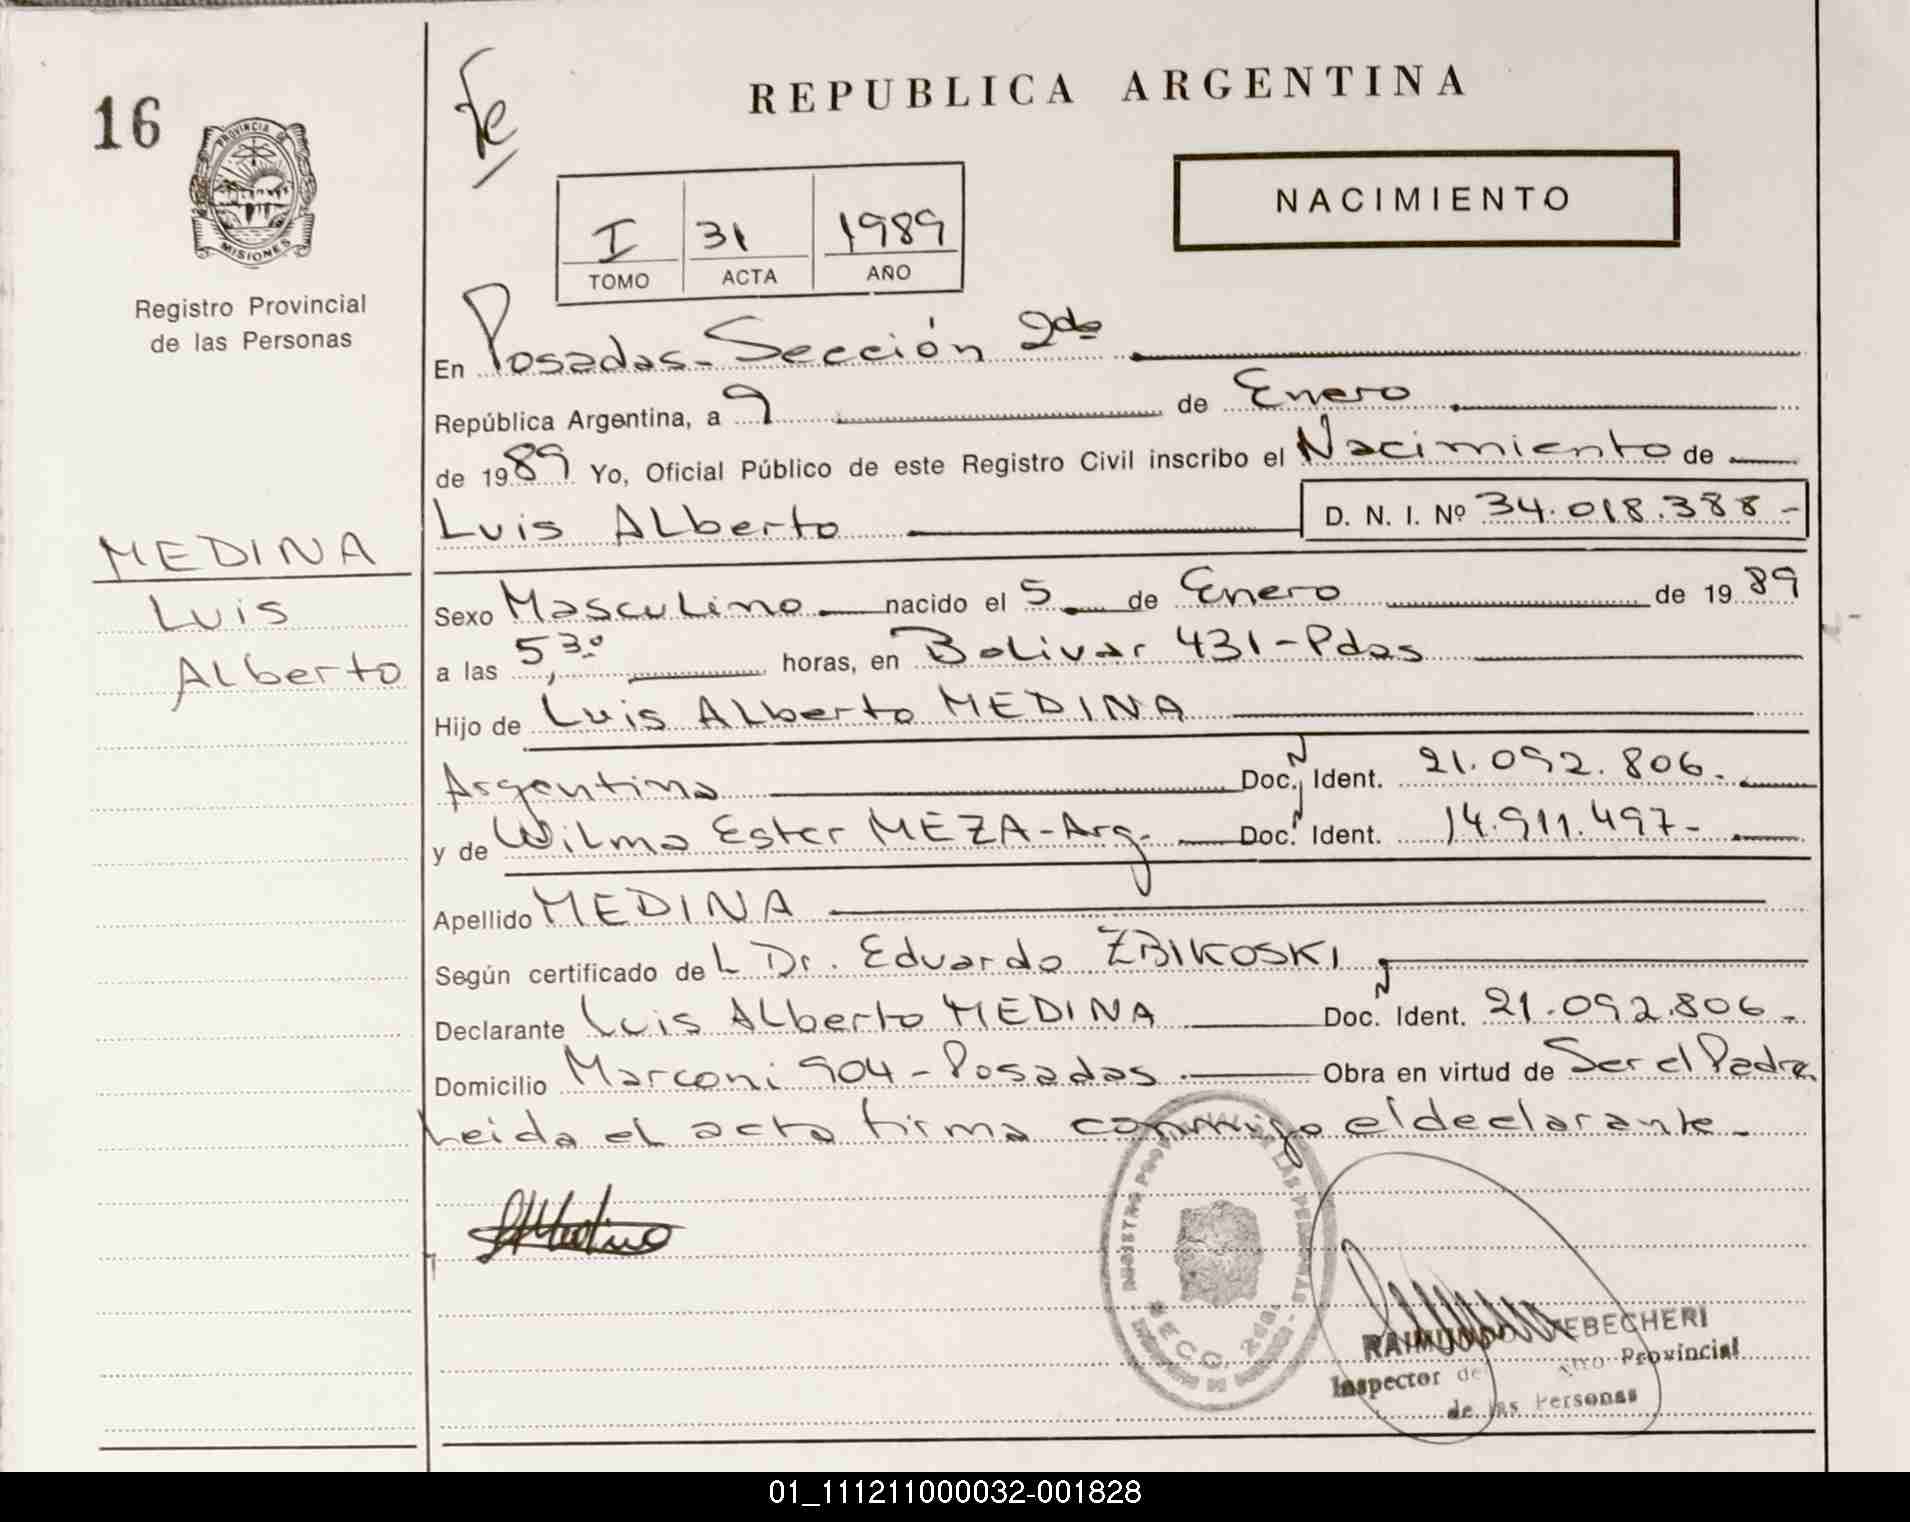 16
PROVINCIA DE
MISIONES
Registro Provincial
de las Personas
MEDINA
Luis
Alberto
Fe
REPUBLICA ARGENTINA
NACIMIENTO
I 31 1989
TOMO ACTA AÑO
En Posadas - Sección 2da
República Argentina, a 9 de Enero
de 1989 Yo, Oficial Público de este Registro Civil inscribo el Nacimiento de
Luis Alberto D. N. I. Nº 34.018.388-
Sexo Masculino nacido el 5 de Enero de 1989
a las 5,30 horas, en Bolivar 431-Pdas
Hijo de Luis Alberto MEDINA
Argentino Doc. N Ident. 21.092.806.
y de Wilma Ester MEZA-Arg. Doc. N Ident. 14.911.497-
Apellido MEDINA
Según certificado del Dr. Eduardo ZBIKOSKI
Declarante Luis Alberto MEDINA Doc. N Ident. 21.092.806-
Domicilio Marconi 904 - Posadas Obra en virtud de Ser el Padre
Leida el acta firma conmigo el declarante-
Medina
LAS PERSONAS
SECC. 2da.
RAIMUNDO EBECHERI
Inspector de Provincial
de las Personas
01_111211000032-001828